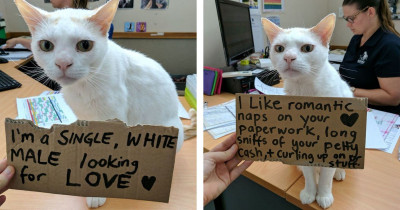 I'm a SINGLE, WHITE
MALE looking
for LOVE ♥
I Like romantic
naps on your
paperwork, long
sniffs of your petty
Cash, + curling up on ur
... stuff. ♥